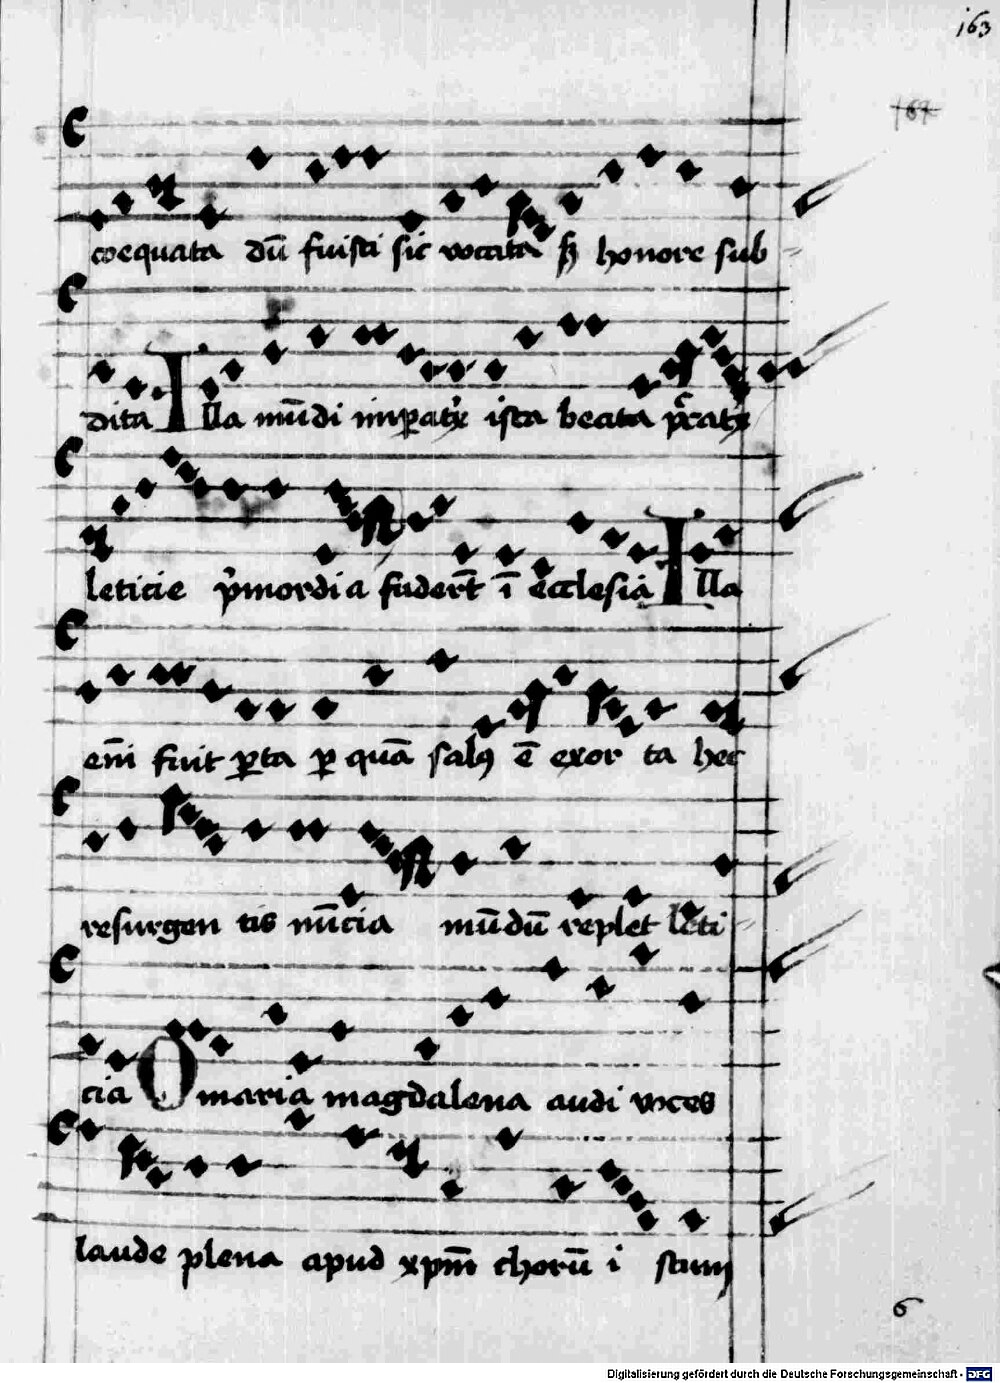 163
167
coequata dū fuisti sic vocata sȝ honore sub
dita Illa mūdi impatx ista beata pͣcatx
leticie pͥmordia fudert̄ ī ecclesia Illa
em̄ fuit porta ꝑ quā salus ē exor ta hec
resurgen tis nūcia mūdū replet leti
cia O maria magdalena audi voces
laude plena apud xpm̄ chorū i stum
6
Digitalisierung gefördert durch die Deutsche Forschungsgemeinschaft - DFG